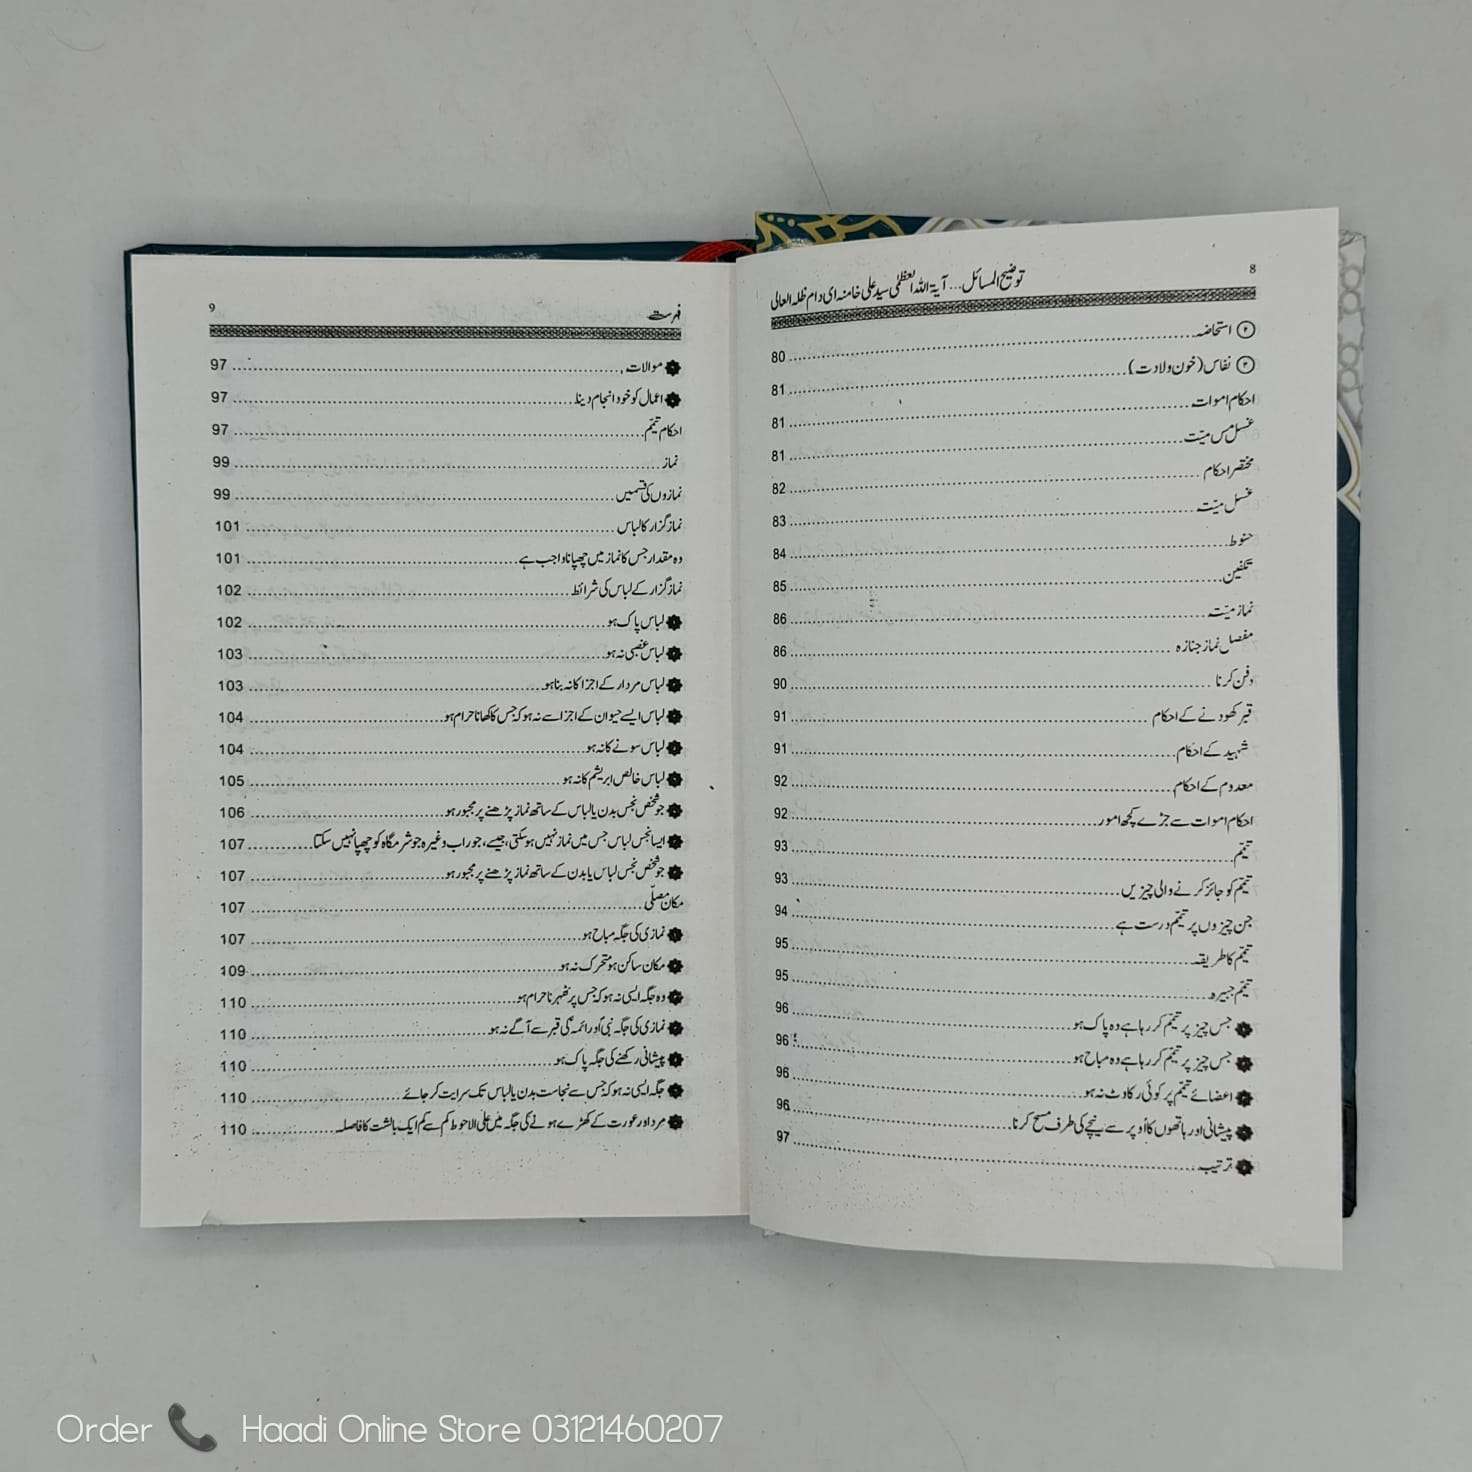 8
توضیح المسائل... آیۃ اللہ العظمٰی سید علی خامنہ ای دام ظلہ العالی
۲ استحاضہ 80
۳ نفاس (خون ولادت) 81
احکام اموات 81
غسل مس میّت 81
مختصر احکام 82
غسل میّت 83
حنوط 84
تکفین 85
نماز میّت 86
مفصل نماز جنازہ 86
دفن کرنا 90
قبر کھودنے کے احکام 91
شہید کے احکام 91
معدوم کے احکام 92
احکام اموات سے جڑے کچھ امور 92
تیمّم 93
تیمّم کو جائز کرنے والی چیزیں 93
جن چیزوں پر تیمّم درست ہے 94
تیمّم کا طریقہ 95
تیمّم جبیرہ 95
جس چیز پر تیمّم کر رہا ہے وہ پاک ہو 96
جس چیز پر تیمّم کر رہا ہے وہ مباح ہو 96
اعضائے تیمّم پر کوئی رکاوٹ نہ ہو 96
پیشانی اور ہاتھوں کا اُوپر سے نیچے کی طرف مسح کرنا 96
ترتیب 97
فہرست 9
موالات 97
اعمال کو خود انجام دینا 97
احکام تیمّم 97
نماز 99
نمازوں کی قسمیں 99
نماز گزار کا لباس 101
وہ مقدار جس کا نماز میں چھپانا واجب ہے 101
نماز گزار کے لباس کی شرائط 102
لباس پاک ہو 102
لباس غصبی نہ ہو 103
لباس مردار کے اجزا کا نہ بنا ہو 103
لباس ایسے حیوان کے اجزا سے نہ ہو کہ جس کا کھانا حرام ہو 104
لباس سونے کا نہ ہو 104
لباس خالص ابریشم کا نہ ہو 105
جو شخص نجس بدن یا لباس کے ساتھ نماز پڑھنے پر مجبور ہو 106
ایسا نجس لباس جس میں نماز نہیں ہو سکتی، جیسے، جوراب وغیرہ جو شرمگاہ کو چھپا نہیں سکتا 107
جو شخص نجس لباس یا بدن کے ساتھ نماز پڑھنے پر مجبور ہو 107
مکان مصلّی 107
نمازی کی جگہ مباح ہو 107
مکان ساکن ہو متحرک نہ ہو 109
وہ جگہ ایسی نہ ہو کہ جس پر ٹھہرنا حرام ہو 110
نمازی کی جگہ نبیؐ اور ائمہؑ کی قبر سے آگے نہ ہو 110
پیشانی رکھنے کی جگہ پاک ہو 110
جگہ ایسی نہ ہو کہ جس سے نجاست بدن یا لباس تک سرایت کر جائے 110
مرد اور عورت کے کھڑے ہونے کی جگہ میں علی الاحوط کم سے کم ایک بالشت کا فاصلہ 110
Order Haadi Online Store 03121460207